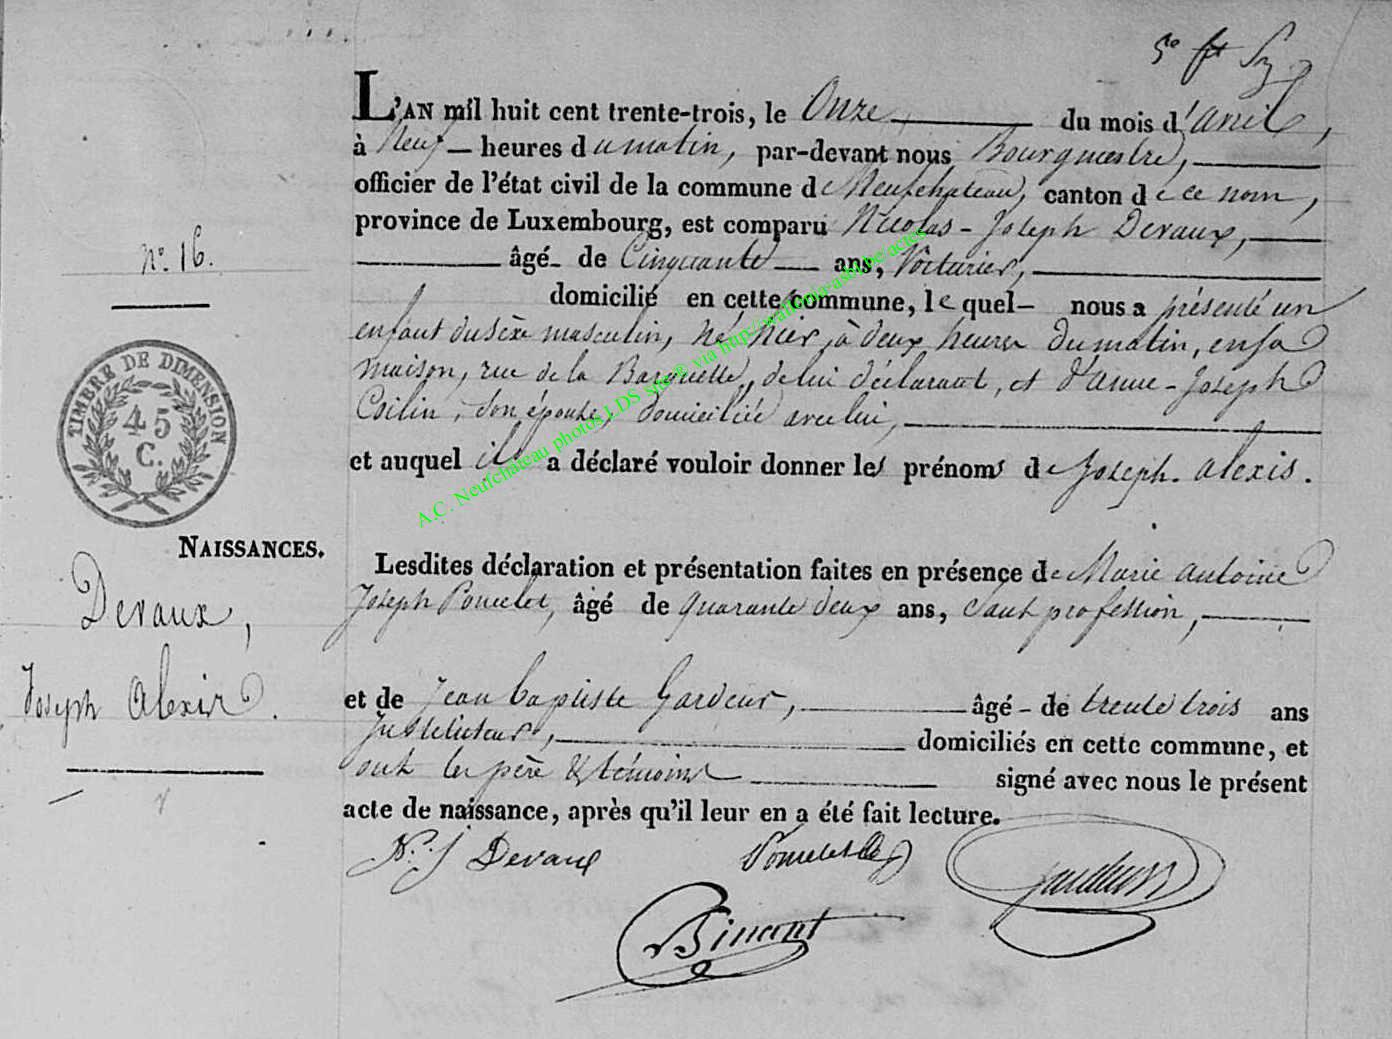 5e ft
L'AN mil huit cent trente-trois, le Onze du mois d'avril,
à Neuf heures du matin, par-devant nous Bourgmestre,
officier de l'état civil de la commune de Neufchateau, canton de ce nom,
province de Luxembourg, est comparu Nicolas-Joseph Devaux,
âgé de Cinquante ans, Voiturier,
domicilié en cette commune, lequel nous a présenté un
enfant du sèxe masculin, né hier, à deux heures du matin, en sa
maison, rue de la Barquette, de lui déclarant, et d'Anne-Joseph
Coilin, son épouse, domiciliée avec lui,
et auquel il a déclaré vouloir donner les prénoms de Joseph-alexis.
Lesdites déclaration et présentation faites en présence de Marie antoine
Joseph Poncelet, âgé de quarante deux ans, Sans profession,
et de Jean baptiste Gardeur, âgé de trente trois ans
Instituteur, domiciliés en cette commune, et
ont les père & témoins signé avec nous le présent
acte de naissance, après qu'il leur en a été fait lecture.
N. J Devaux
Poncelet
Binant
No. 16.
TIMBRE DE DIMENSION
45
C.
NAISSANCES.
Devaux,
Joseph Alexis.
A.C. Neufchâteau photos LDS sur ® via http://wallonia-asbl.be/actes